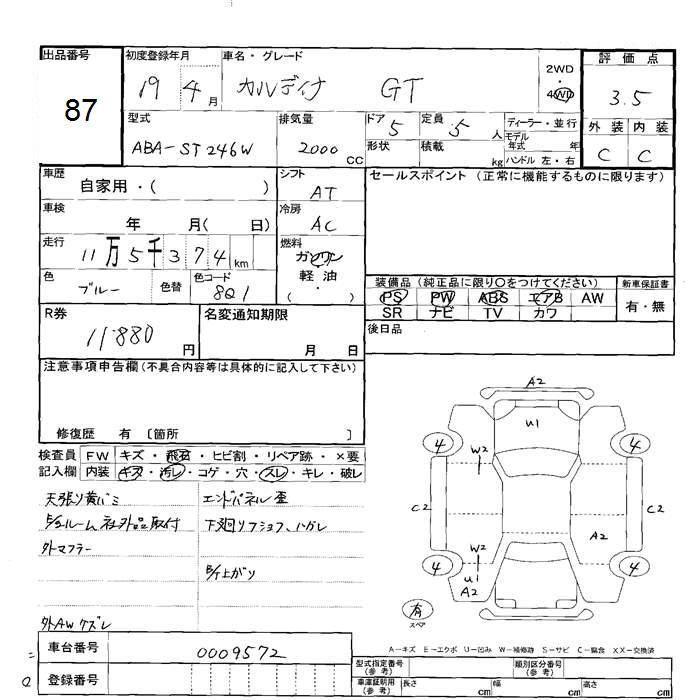 出品番号
87
初度登録年月
19 4 月
車名・グレード
カルディナ GT
2WD
・
4WD
評価点
3.5
外装 内装
C C
型式
ABA-ST246W
排気量
2000 CC
ドア 5
形状
定員 5 人
積載 kg
ディーラー・並行
モデル
年式 年
ハンドル 左・右
車歴
自家用・( )
シフト
AT
セールスポイント (正常に機能するものに限ります)
車検
年 月( 日)
冷房
AC
走行
11万5千374 km
燃料
ガソリン
軽油
( ・ )
色
ブルー
色替
色コード
8Q1
装備品 (純正品に限り○をつけてください)
PS PW ABS エアB AW
SR ナビ TV カワ
新車保証書
有・無
R券
11,880 円
名変通知期限
月 日
後日品
注意事項申告欄 (不具合内容等は具体的に記入して下さい)
修復歴 有 〔箇所 〕
検査員
記入欄
FW キズ・飛石・ヒビ割・リペア跡・×要
内装 キズ・汚レ・コゲ・穴・スレ・キレ・破レ
天張り黄バミ
エンドパネル歪
社外品取付
外マフラー
外AWケズレ
A2
U1
4
4
W2
C2
C2
A2
W2
4
4
U1
A2
有
スペア
A－キズ E－エクボ U－凹み W－補修跡 S－サビ C－腐食 XX－交換済
車台番号
0009572
登録番号
型式指定番号
(参考)
類別区分番号
(参考)
車庫証明用
(参考)
長さ cm
幅 cm
高さ cm